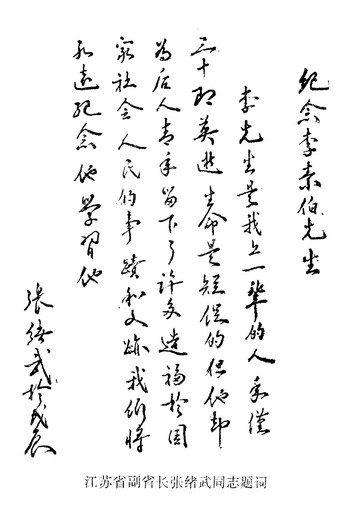 纪念李素伯先生
李先生是我上一辈的人 年仅
三十即英逝生命是短促的但他却
为后人青年留下了许多造福於国
家社会人民的事蹟和文跡我们将
永远纪念他學習他
张绪武於戊辰
江苏省副省长张绪武同志题词